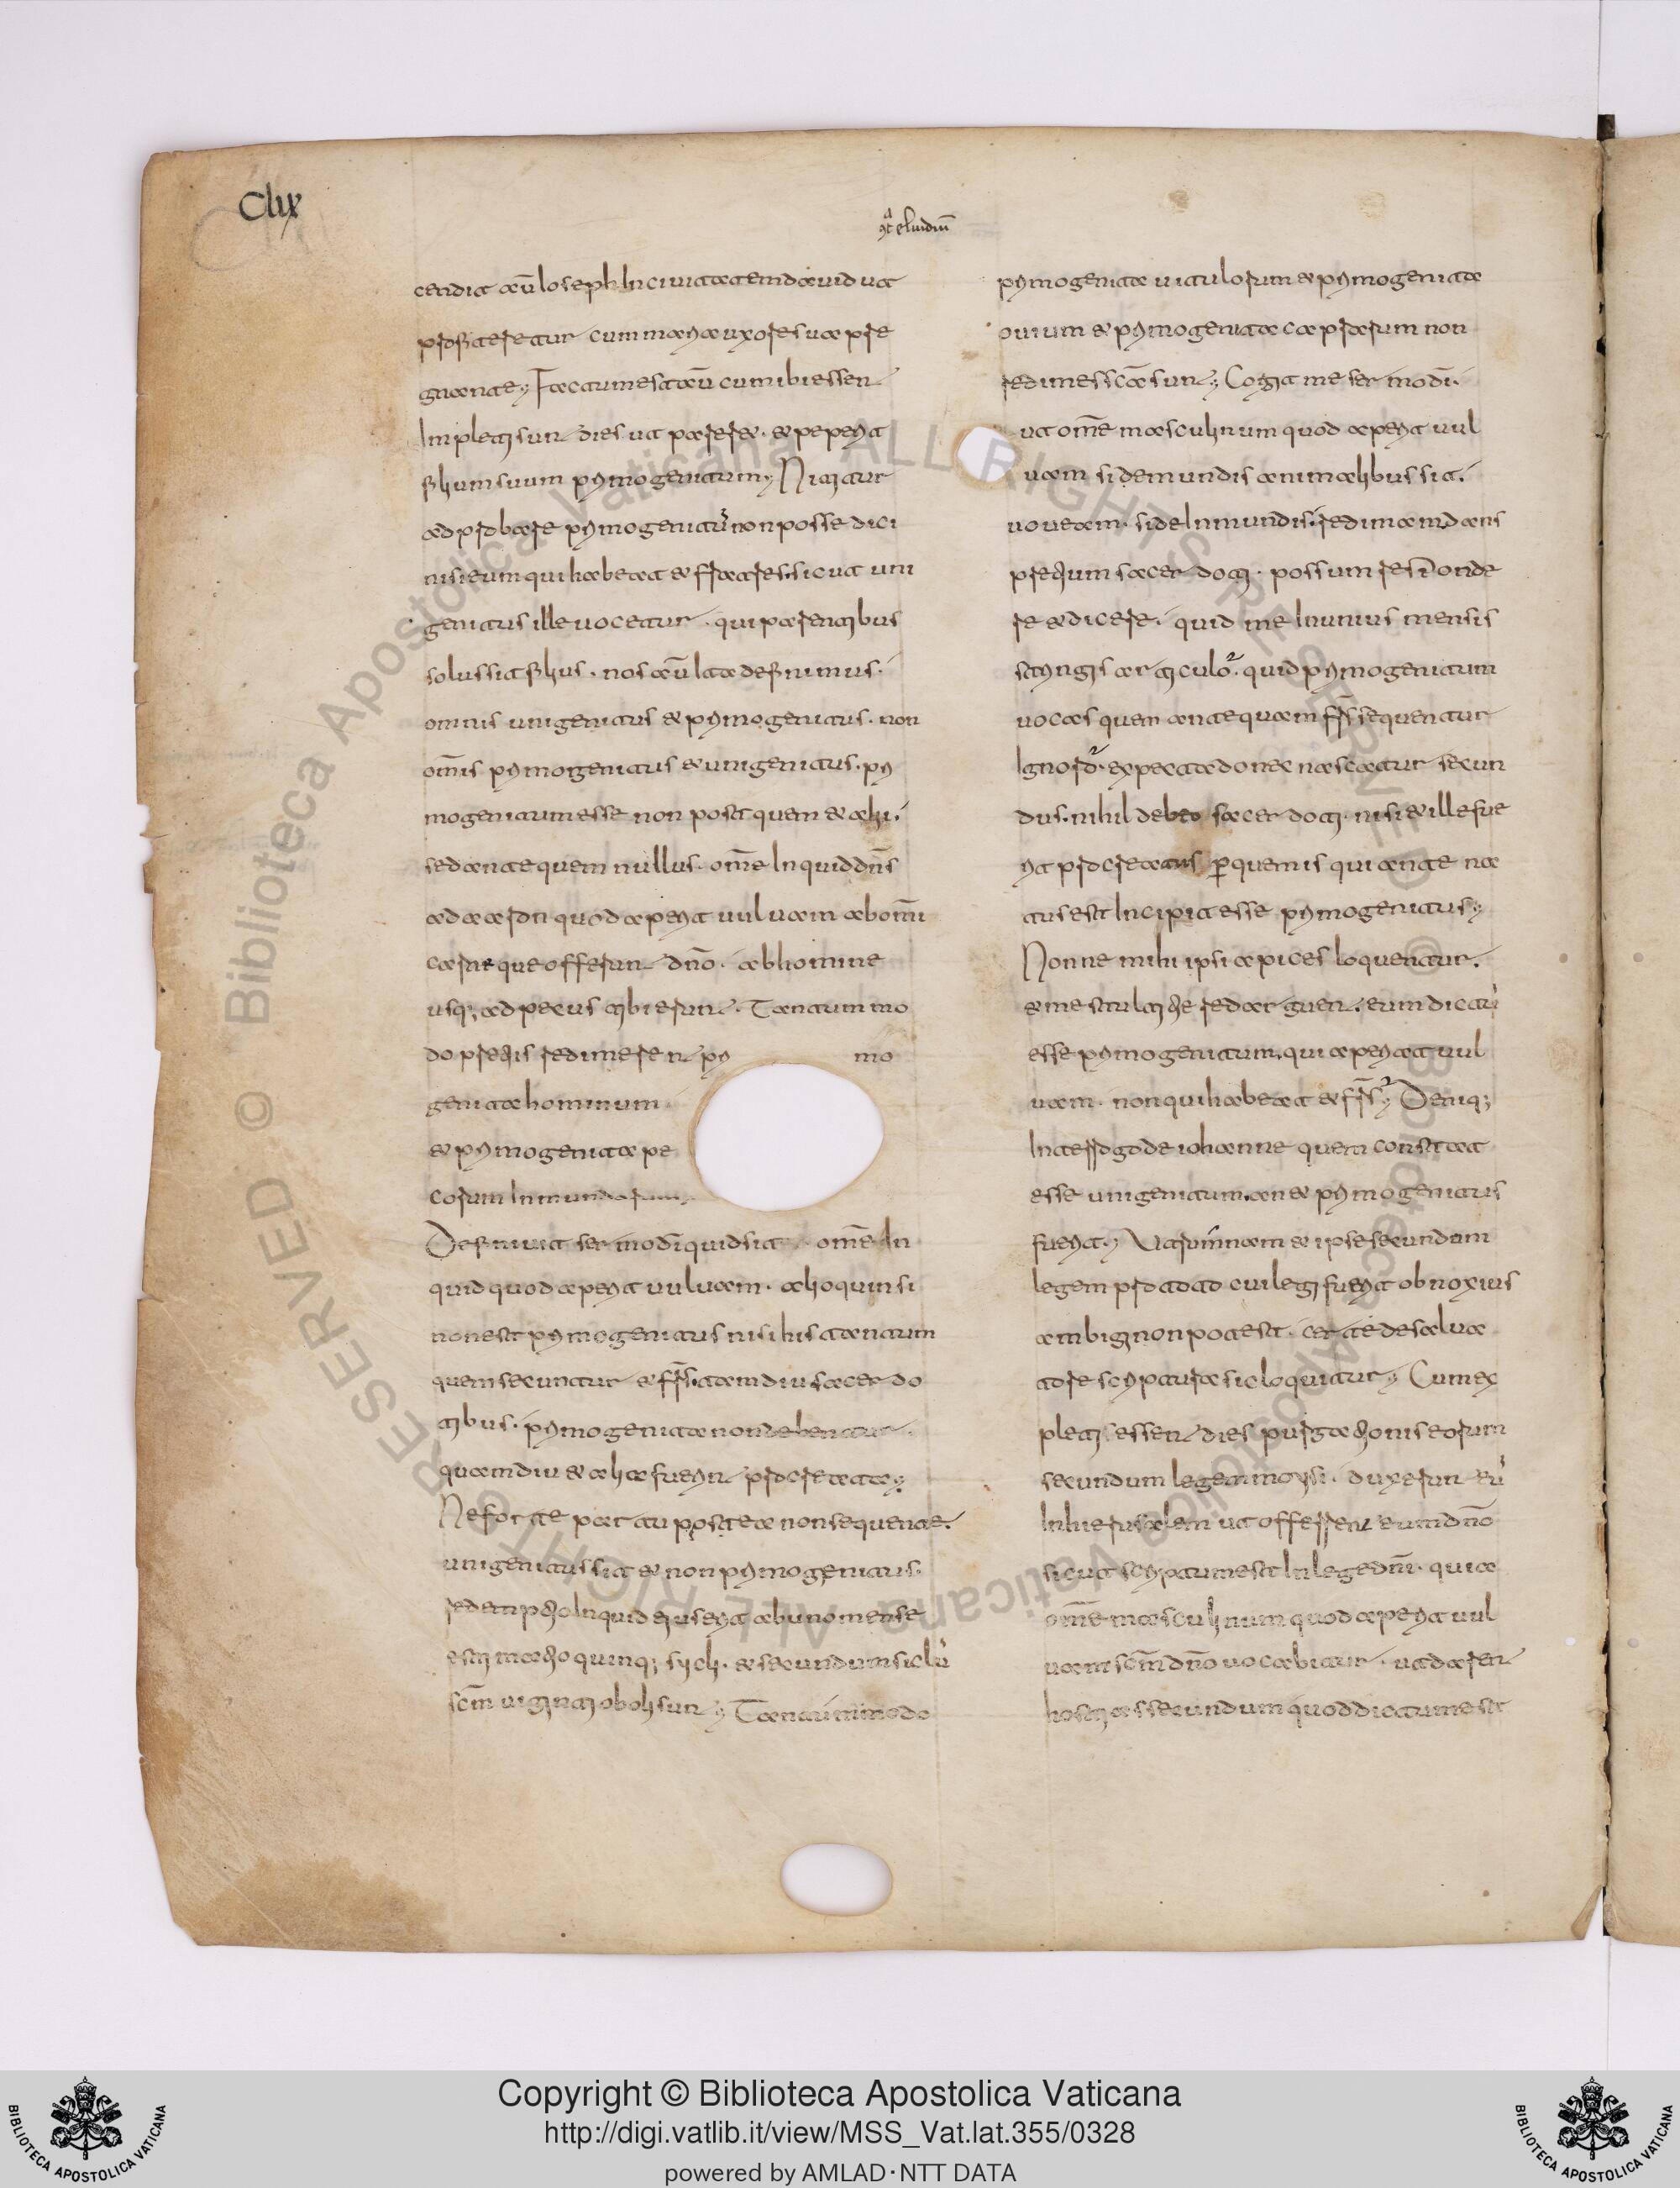 Clix
cōt eluidiū
cendit aūt Ioseph In ciuitatem dauid ut
profiteretur cum maria uxore sua pre
gnante; Factum est aūt cum ibi essent
Inpleti sunt dies ut pareret. et peperit
filium suum primogenitum; Nititur
ad probare primogenitū non posse dici
nisi eum qui habeat et fratres. sicut uni
genitus ille uocetur. qui parentibus
solus sit filius. nos aūt ita definimus.
omnis unigenitus et primogenitus. non
om̄is primogenitus et unigenitus. pri
mogenitum esse non post quem et alii.
sed ante quem nullus. om̄e Inquid dn̄s
ad aaron quod aperit uuluam ab omni
carne que offerunt dn̄o. ab homine
usq; ad pecus tibi erunt. Tantum mo
do pretiis redimerent pri mo
genita hominum
et primogenita pe
corum Inmundorum;
Definiuit sermo dī quid sit om̄e In
quid quod aperit uuluam. alioquin si
non est primogenitus nisi his tantum
quem secuntur et fr̄s. tamdiu sacerdo
tibus. primogenita non debentur.
quamdiu et alia fuerint procreata;
Ne forte partu postea non sequente.
unigenitus sit et non primogenitus.
redemptio Inquid eius erit ab uno mense
estimatio quinq; sicli. et secundum siclū
scm̄ uiginti oboli sunt; Tantummodo
primogenita uitulorum et primogenita
ouium et primogenita caprarum non
redimes sca sunt; Cogit me sermo dī.
ut om̄e masculinum quod aperit uul
uam si de mundis animalibus sit.
uoueam. si de Inmundis. redimam dans
pretium sacerdoti. possum respondē
re et dicere. quid me In unius mensis
stringis articulo. quid primogenitum
uocas quem ante quam fr̄s sequentur
Ignoro. expecta donec nascatur secun
dus. nihil debeo sacerdoti. nisi et ille fue
rit procreatus per quem is qui ante na
tus est Incipiat esse primogenitus;
Nonne mihi ipsi apices loquentur.
et me stultitiae redarguent. eum dictū
esse primogenitum. qui aperiat uul
uam. non qui habeat et fr̄s; Deniq;
Interrogo de iohanne quem constat
esse unigenitum. an et primogenitus
fuerit; Utrumnam et ipse secundum
legem pro toto cui legi fuerit obnoxius
ambigi non potest. certe de salua
tore scriptura sic loquitur; Cum ex
pleti essent dies purgationis eorum
secundum legem moysi. duxerunt eū
In hierusalem ut offerrent eum dn̄o
sicut scriptum est In lege dn̄i. quia
om̄e masculinum quod aperit uul
uam scm̄ dn̄o uocabitur. ut darent
hostias secundum quod dictum est
Copyright © Biblioteca Apostolica Vaticana
http://digi.vatlib.it/view/MSS_Vat.lat.355/0328
powered by AMLAD·NTT DATA
BIBLIOTECA APOSTOLICA VATICANA
BIBLIOTECA APOSTOLICA VATICANA